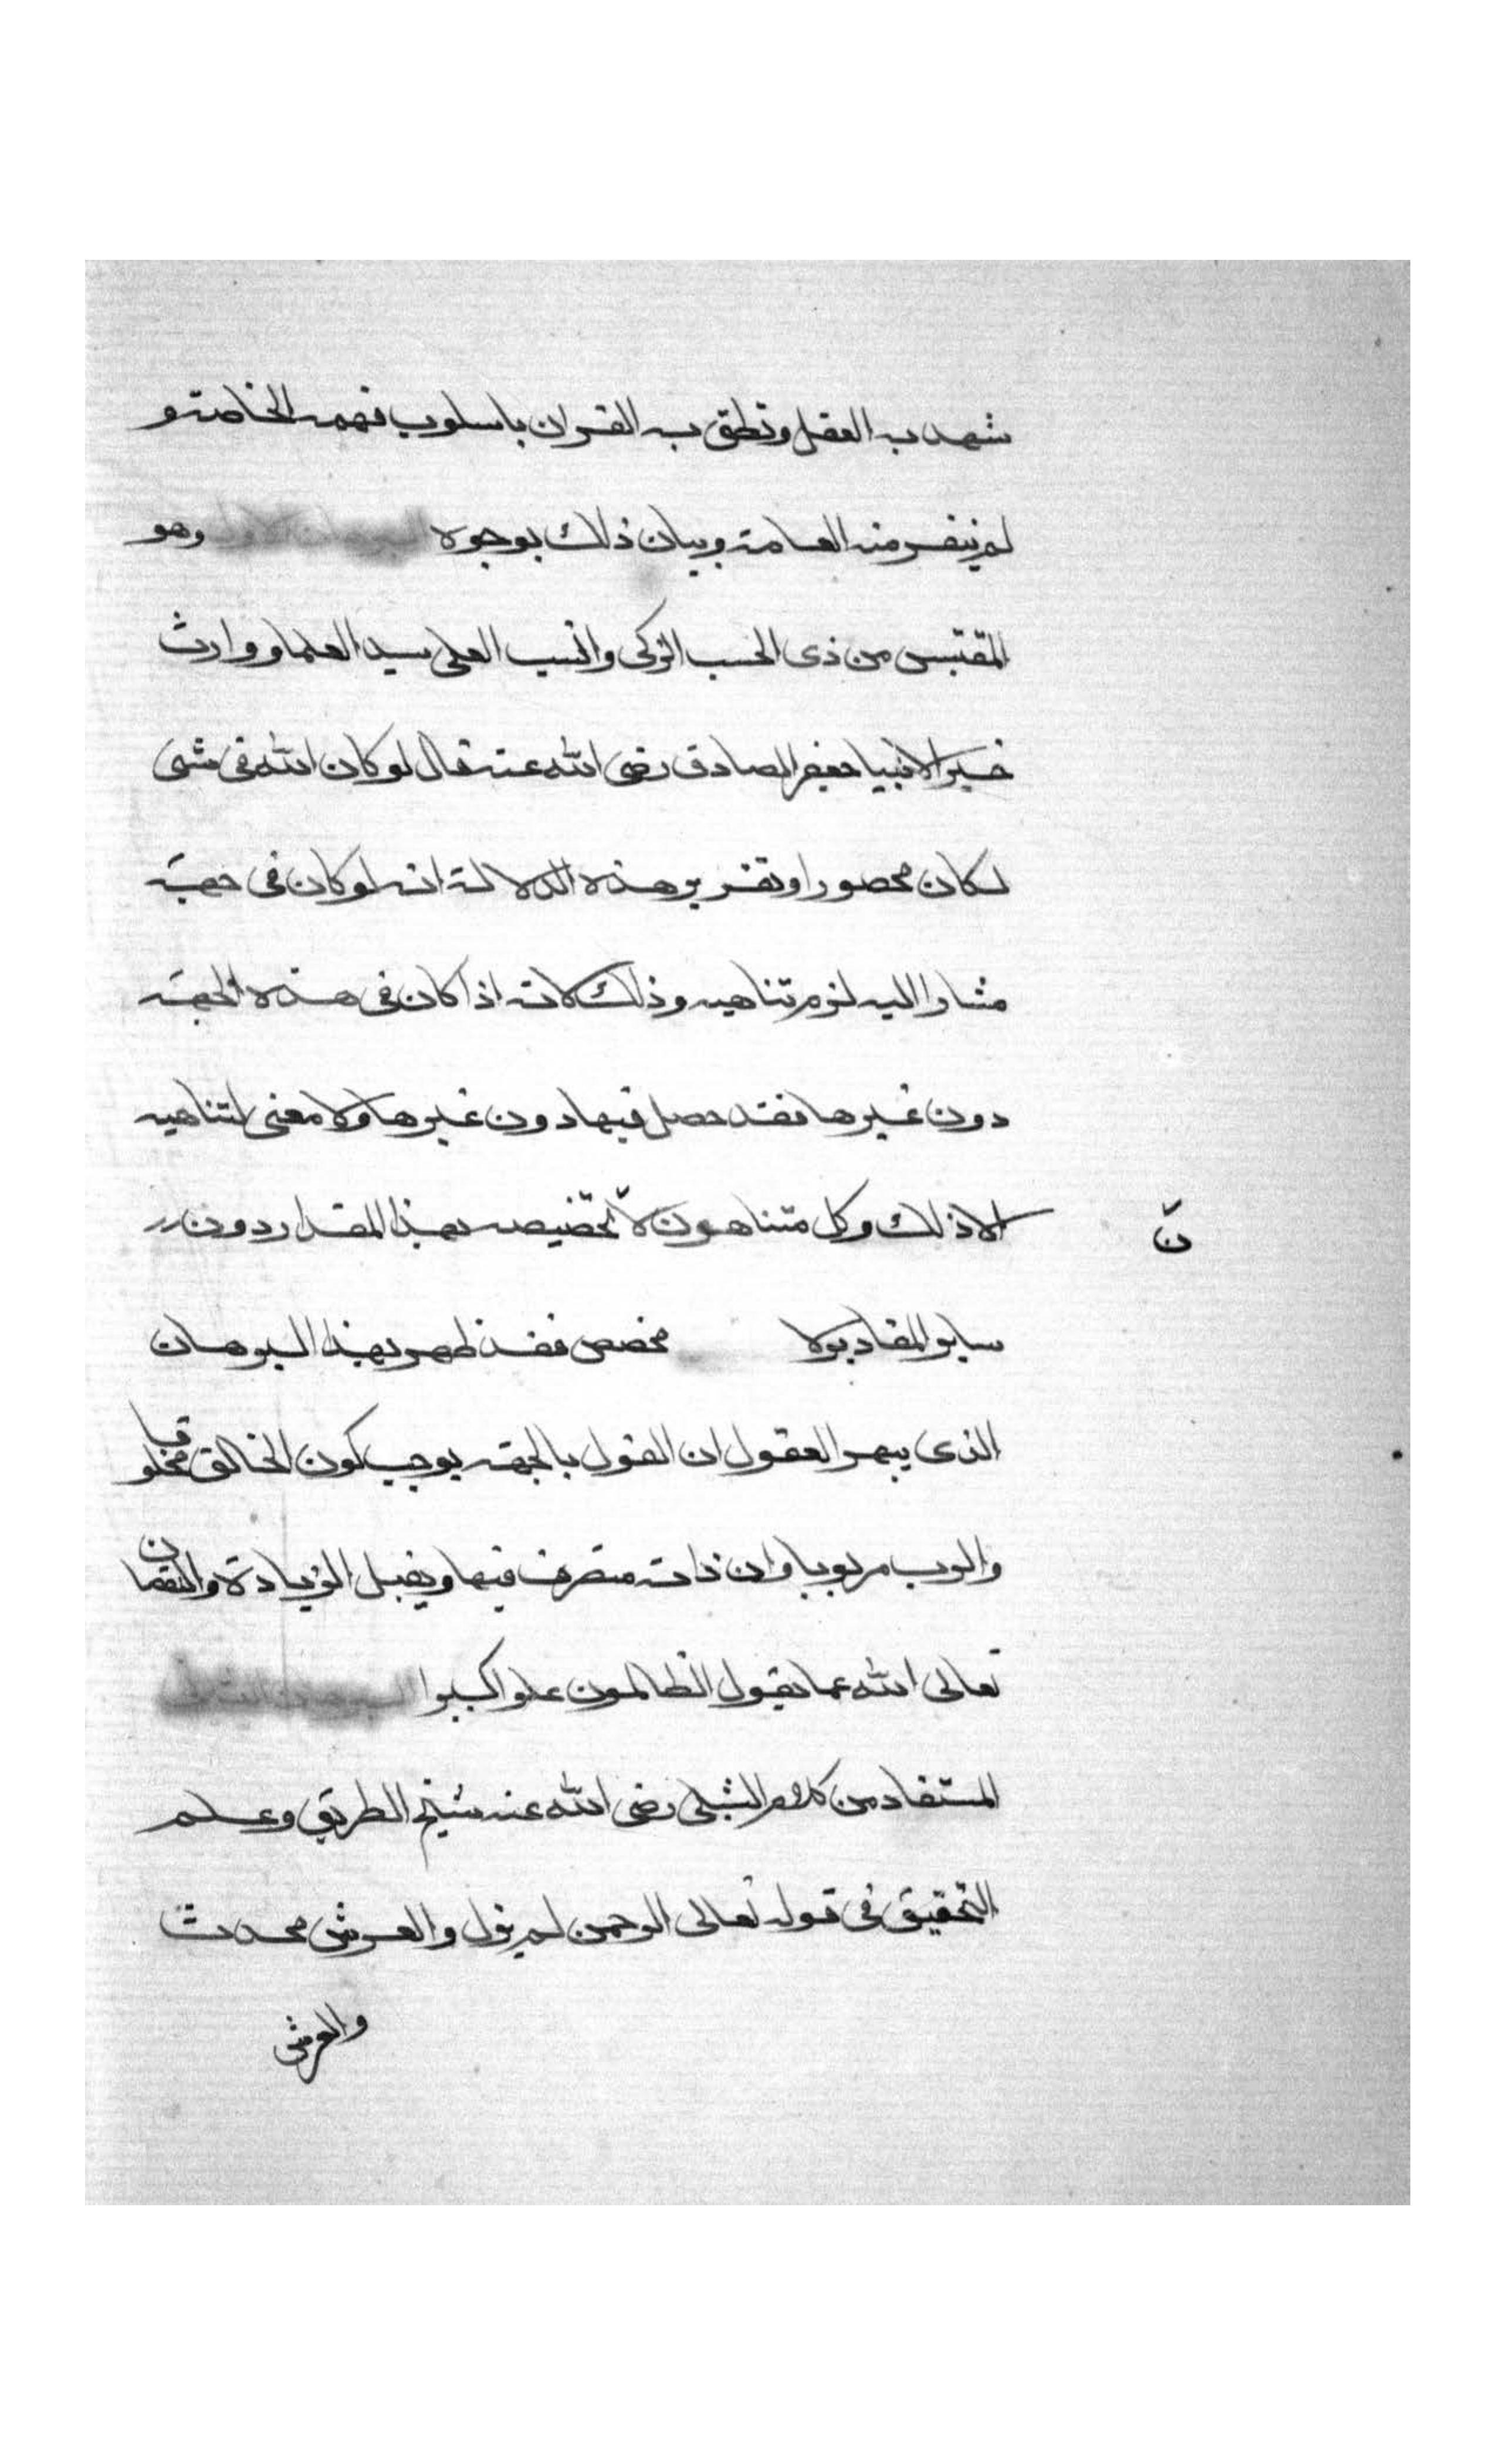 شهد به العقل ونطق به القران باسلوب فهمه الخاصة و
لم ينفر منه العامة وبيان ذلك بوجوه البرهان الاول وهو
المقتبس من ذى الحسب الزكى والنسب العلى سيد العلما ووارث
خير الانبيا جعفر الصادق رضى الله عنه قال لو كان الله فى شى
لكان محصورا وتقرير هذه الدلالة انه لو كان فى جهة
مشارا اليه لزم تناهيه وذلك لانه اذا كان فى هذه الجهة
دون غيرها فقد حصل فيها دون غيرها ولا معنى لتناهيه
الا ذلك وكل متناه ... لانّ تخصيصه بهذا المقدار دون
ساير المقادير لا
مخصص فقد ظهر بهذا البرهان
الذى يبهر العقول ان القول بالجهة يوجب كون الخالق مخلوقا
والرب مربوبا وان ذاته متصرف فيها ويقبل الزيادة والنقصان
تعالى الله عما يقول الظالمون علوا كبيرا البرهان الثانى
المستفاد من كلام الشبلى رضى الله عنه شيخ الطريق وعلم
التحقيق فى قوله تعالى الرحمن لم يزل والعرش محدث
والعرش
نّ